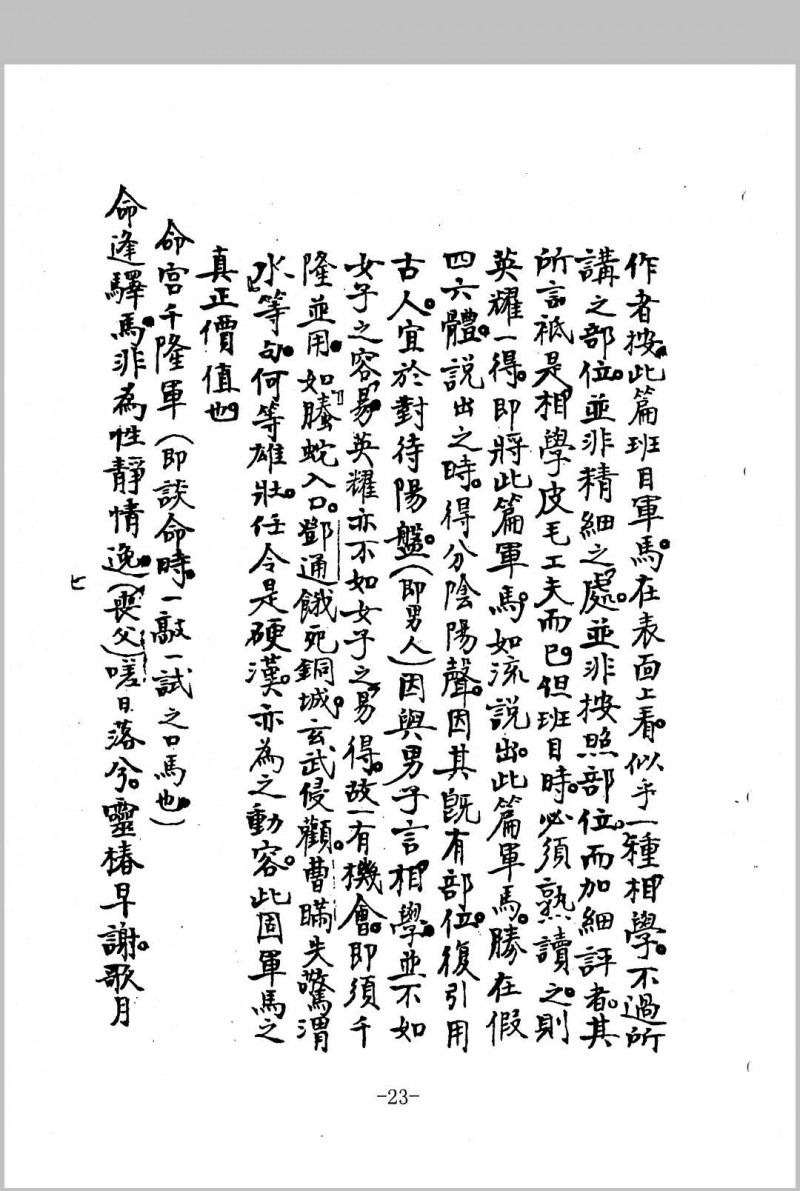 作者按。此篇班目軍馬。在表面上看。似乎一種相學。不過所
講之部位。並非精細之處。並非按照部位。而加細評者。其
所言祗是相學皮毛工夫而已。但班目時。必須熟讀之。則
英耀一得。即將此篇軍馬。如流說出。此篇軍馬。勝在假
四六體。說出之時。得分陰陽聲。因其既有部位。復引用
古人。宜於對待陽盤。(即男人)因與男子言相學。並不如
女子之容易。英耀亦不如女子之易得。故一有機會。即須千
隆並用。如「螣蛇入口。鄧通餓死銅城。玄武侵顴。曹瞞失驚渭
水」等句。何等雄壯。任令是硬漢。亦為之動容。此固軍馬之
真正價值也。
命宮千隆軍(即談命時。一敲一試之口馬也。)
命逢驛馬。非為性靜情逸。(喪父)嗟日落兮。靈椿早謝。歌月
七
-23-